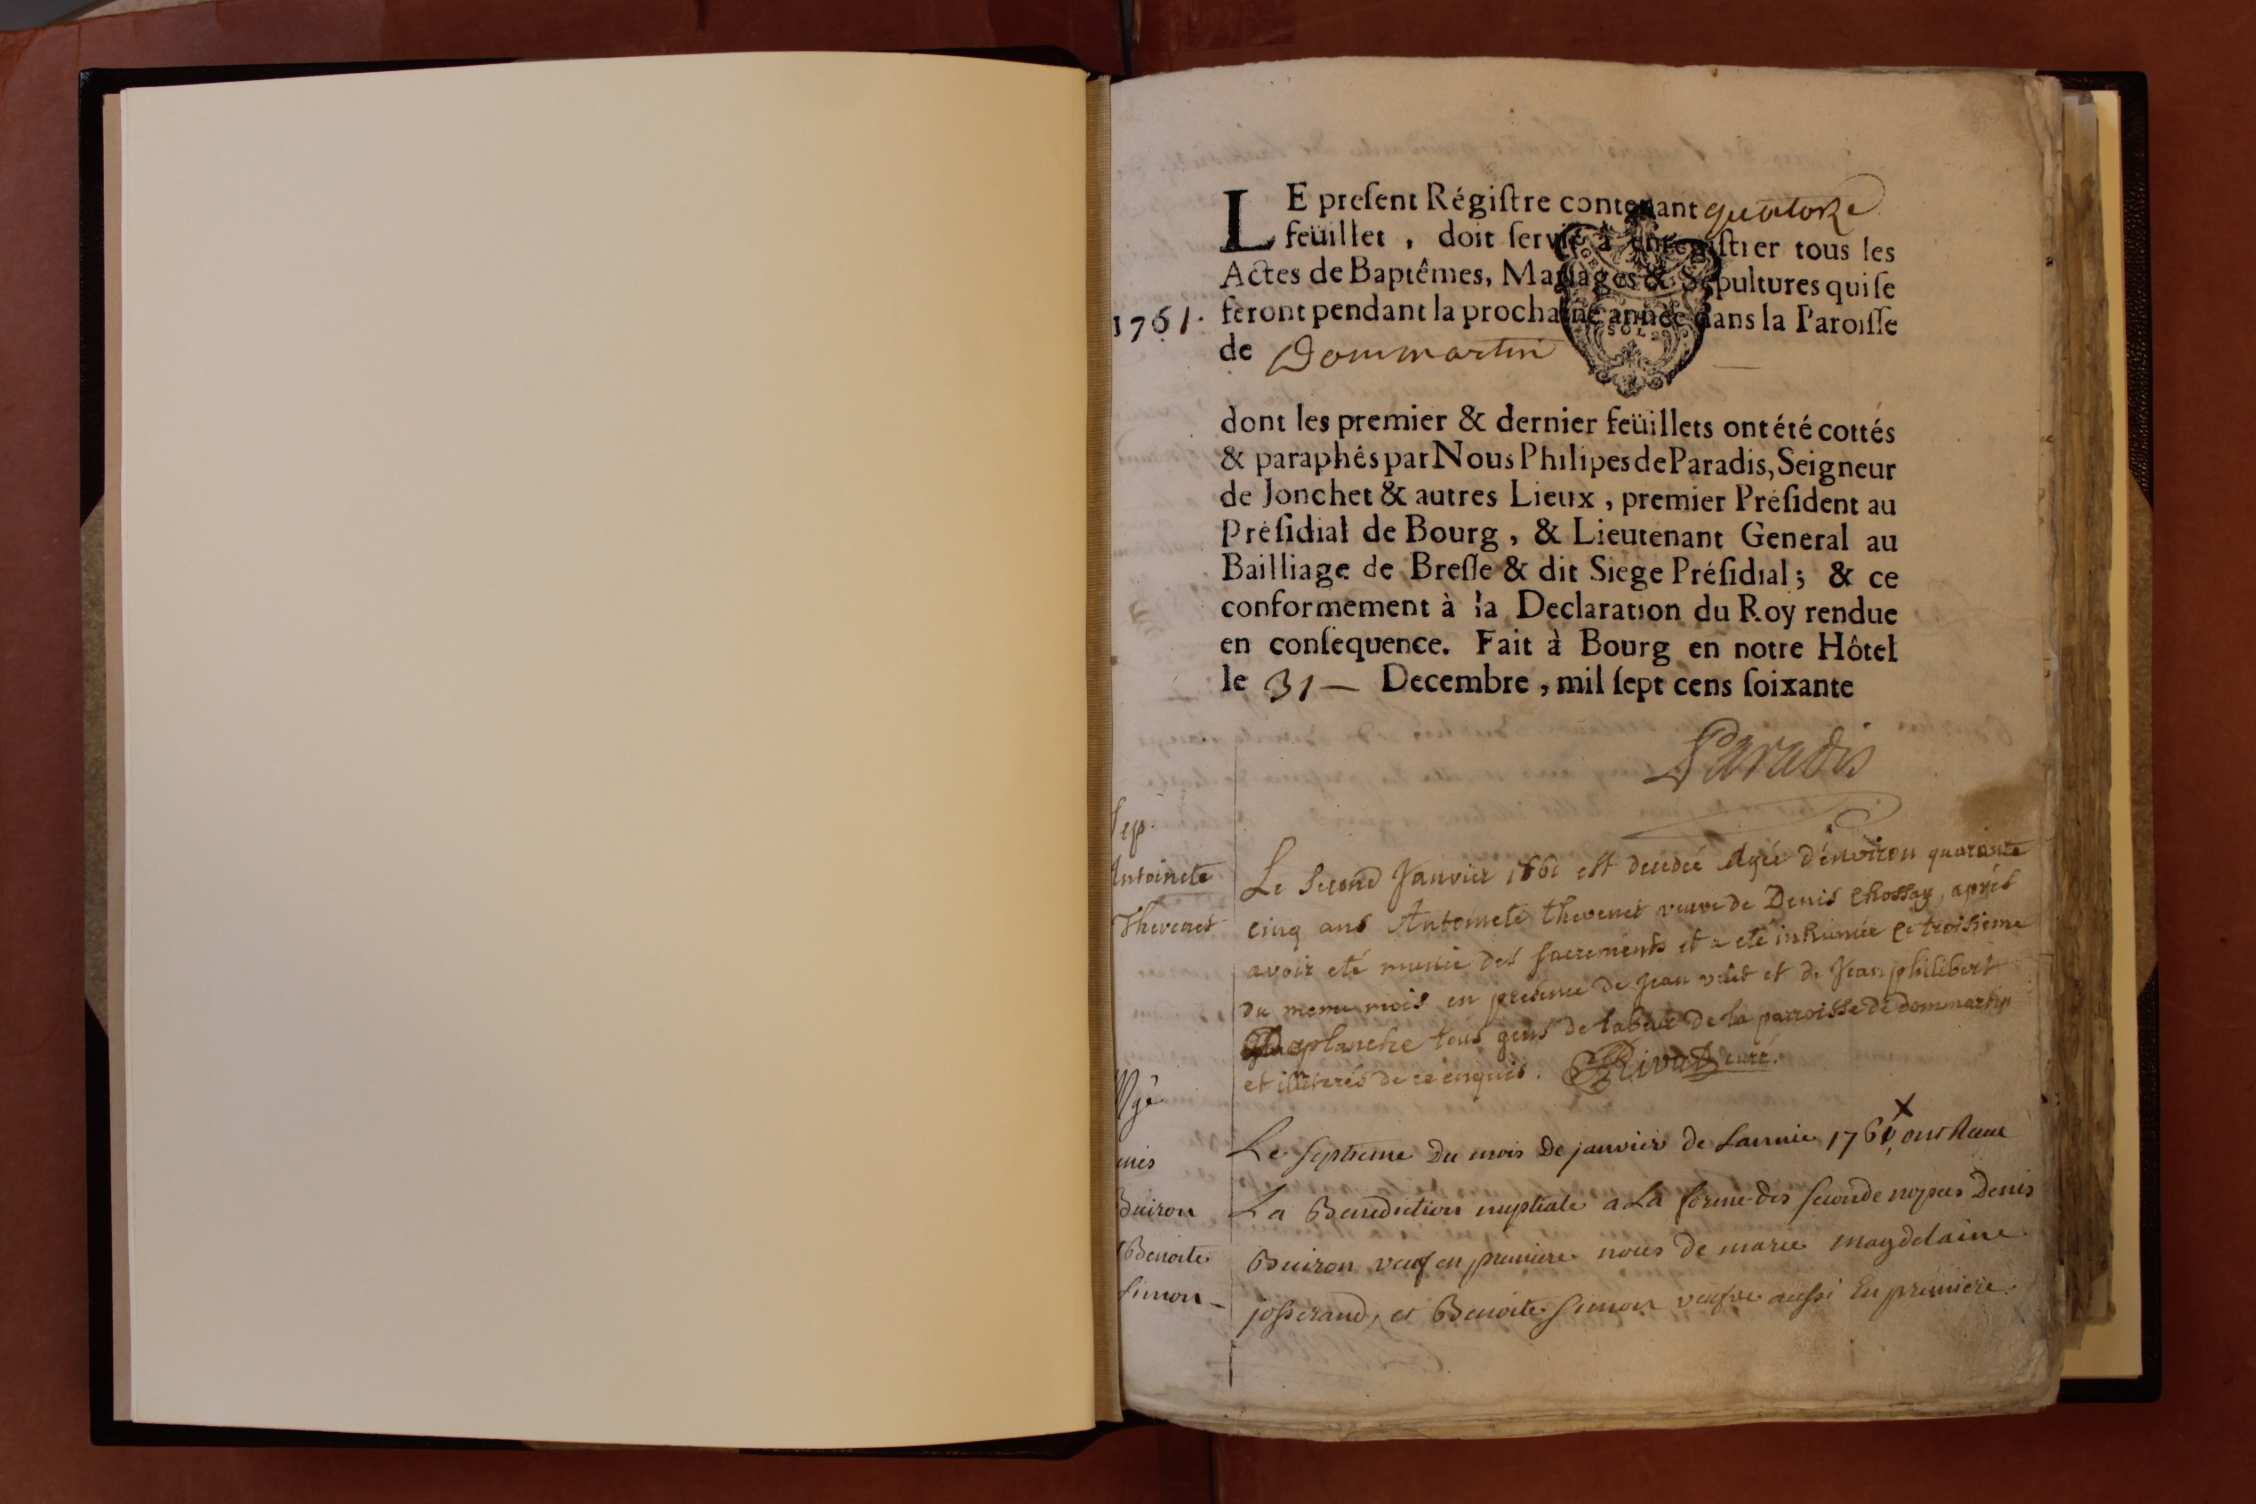 LE preſent Régiſtre contenant quatorze
feüillet, doit ſervir à enregiſtrer tous les
Actes de Baptêmes, Mariages & Sepultures qui ſe
1761. feront pendant la prochaine année dans la Paroiſſe
de Dommartin
dont les premier & dernier feüillets ont été cottés
& paraphés par Nous Philipes de Paradis, Seigneur
de Jonchet & autres Lieux, premier Préſident au
Préſidial de Bourg, & Lieutenant General au
Bailliage de Breſſe & dit Siege Préſidial; & ce
conformement à la Declaration du Roy rendue
en conſequence. Fait à Bourg en notre Hôtel
le 31 — Decembre, mil ſept cens ſoixante
Paradis
Sep.
Antoinete
Thevenet
Le second Janvier 1761 est decedée Agée d'environ quarante
cinq ans Antoinete thevenet veuve de Denis Chossag, aprés
avoir eté munie des sacrements et a eté inhumée le troisiéme
du meme mois en presence de Jean velet et de Jean philibert
planche tous gens de labeur de la parroisse de dommartin
et illiterés de ce enquis. Rivat curé.
Mge
Buiron
Benoite
Simon
Le septieme du mois de janvier de Lannée 1761 ont Receu
La Benediction nuptiale a La forme des seconde nopces Denis
Buiron veuf en premiere noces de marie magdelaine
josserand, et Benoite Simon veufve aussi En premiere